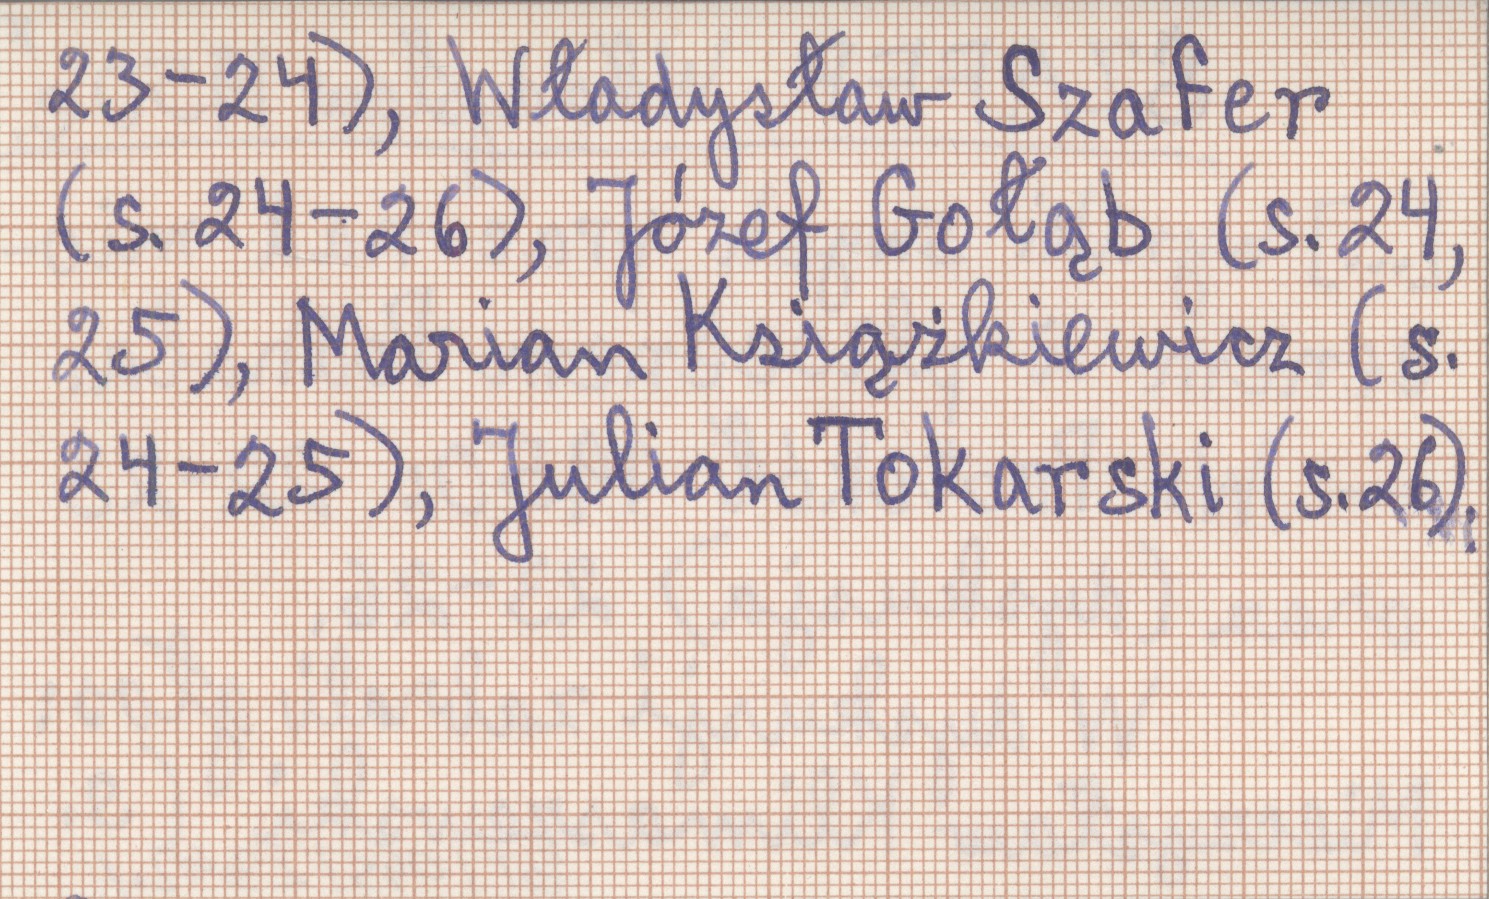 23-24), Władysław Szafer
(s. 24-26), Józef Gołąb (s. 24,
25), Marian Książkiewicz (s.
24-25), Julian Tokarski (s. 26).